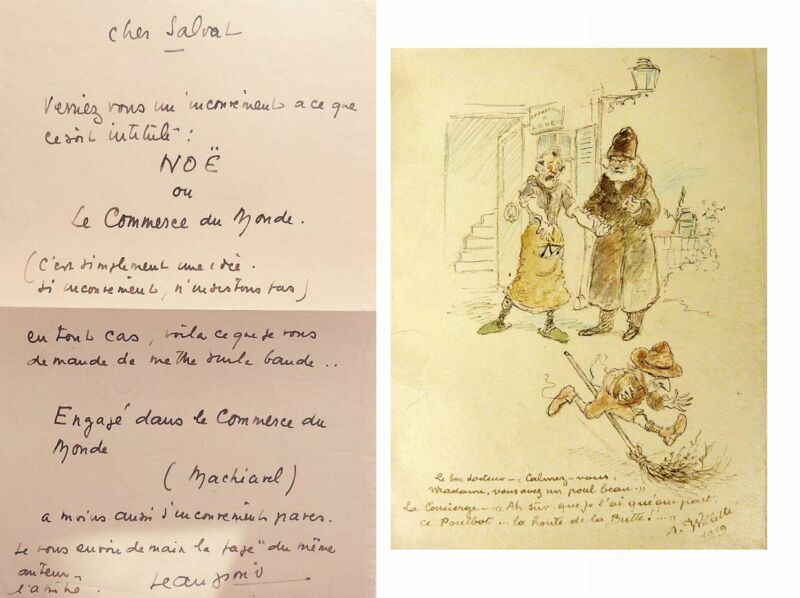 cher Salvat
Verriez vous un inconvénient a ce que
ce soit intitulé :
NOË
ou
Le Commerce du Monde.
(C'est simplement une idée.
si inconvénient, n'insistons pas)
en tout cas, voila ce que je vous
demande de mettre sur la bande ..
Engagé dans le Commerce du
Monde
(Machiavel)
a moins aussi d'inconvénient
Je vous envoie demain la page "du même
auteur"
l'amitié.
Jean Giono
APPARTEMENT
A LOUER
Le bon docteur — « Calmez-vous,
Madame, vous avez un poul beau...»
La Concierge — « Ah sûr que je l'ai quéqu'part
ce Poulbot ... la honte de la Butte !! ...»
A. Willette
1919